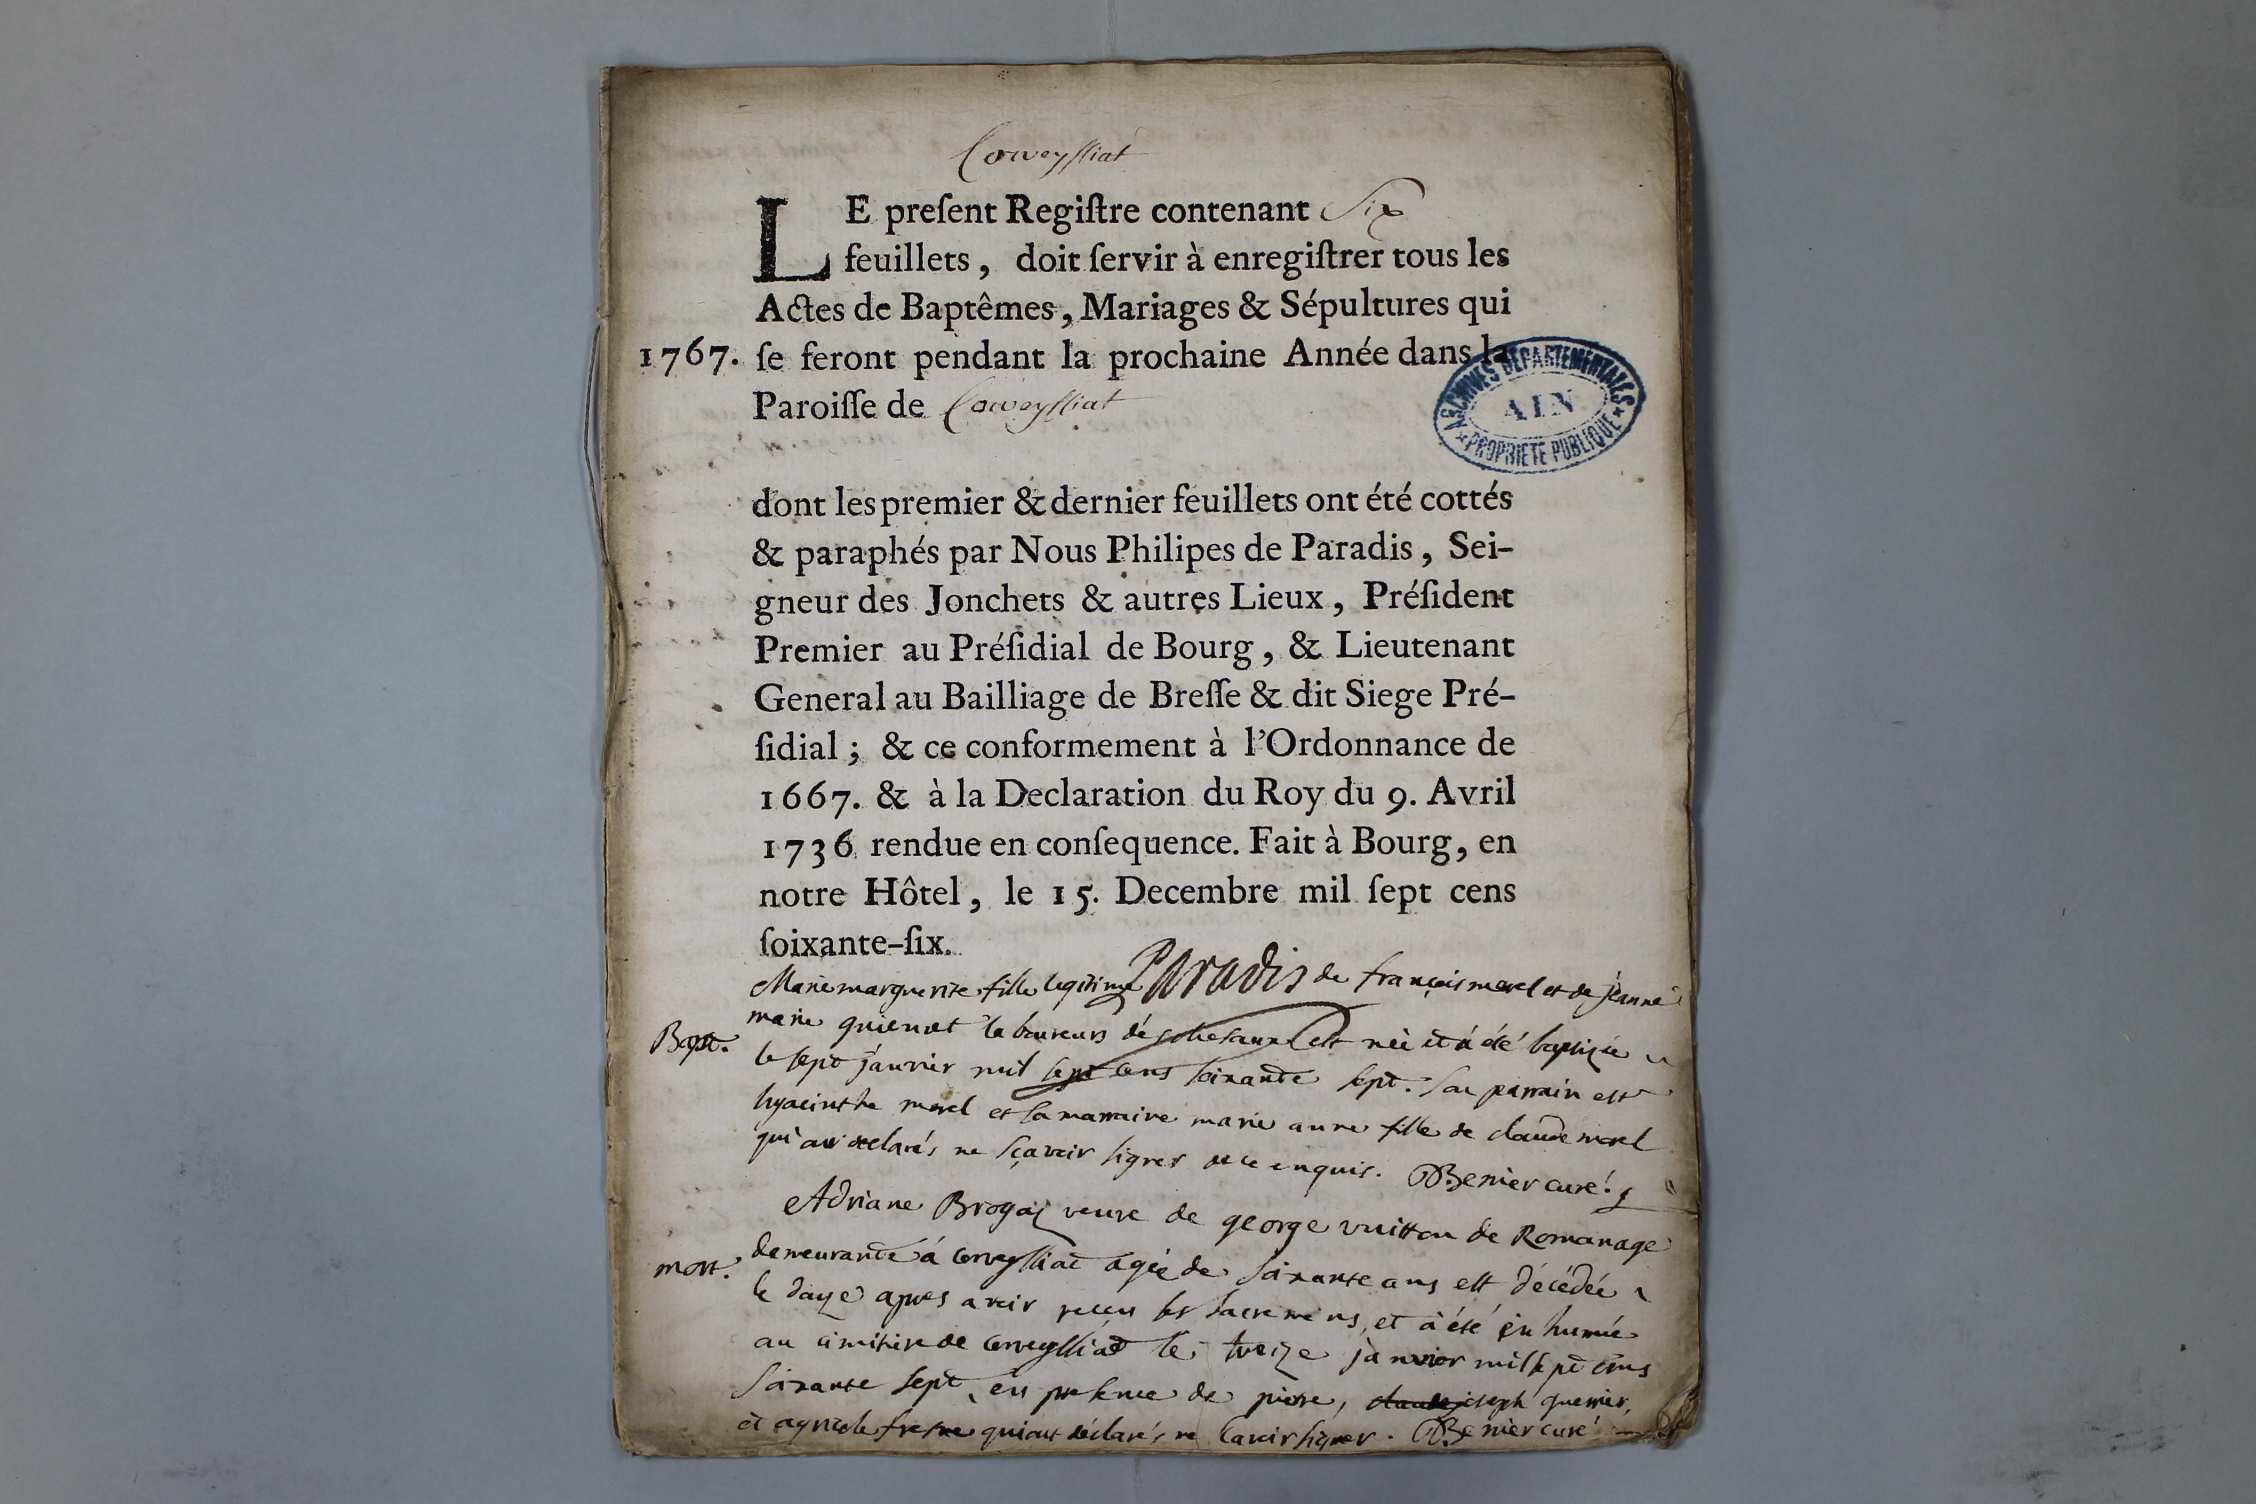 Corveyssiat
LE preſent Regiſtre contenant Six
feuillets, doit ſervir à enregiſtrer tous les
Actes de Baptêmes, Mariages & Sépultures qui
1767. ſe feront pendant la prochaine Année dans la
Paroiſſe de Corveyssiat
ARCHIVES DEPARTEMENTALES
AIN
PROPRIETE PUBLIQUE
dont les premier & dernier feuillets ont été cottés
& paraphés par Nous Philipes de Paradis, Sei-
gneur des Jonchets & autres Lieux, Préſident
Premier au Préſidial de Bourg, & Lieutenant
General au Bailliage de Breſſe & dit Siege Pré-
ſidial; & ce conformement à l'Ordonnance de
1667. & à la Declaration du Roy du 9. Avril
1736 rendue en conſequence. Fait à Bourg, en
notre Hôtel, le 15. Decembre mil ſept cens
ſoixante-ſix.
Paradis
Marie marguerite fille legitime de françois morel et de jeanne
marie laboureurs est née et á été baptizée
Bapt. le sept janvier mil sept cens soixante sept. Son parrain est
hyacinthe morel et sa marraine marie anne fille de claude morel
qui ont declarés ne sçavoir signer de ce enquis. Benier curé.
Adriane veuve de george vuitton de Romanage
mort. demeurante á corveyssiat agée de soixante ans est décédée
le douze apres avoir reçeu les sacremens, et á été inhumée
au cimitire de corveyssiat le treize janvier mil sept cens
soixante sept, en presence de pierre, joseph guerrier,
et qui ont déclarés ne savoir signer. Benier curé